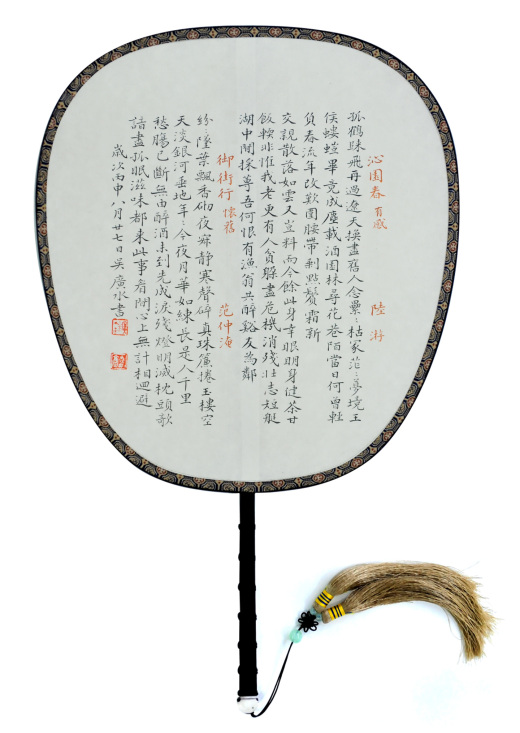 沁園春 百感 陸游
孤鶴歸飛再過遼天換盡舊人念纍〻枯冢茫〻夢境王
侯螻螘畢竟成塵載酒園林尋花巷陌當日何曾輕
負春流年改歎圍腰帶剩點鬢霜新
交親散落如雲又豈料而今餘此身幸眼明身健茶甘
飯軟非惟我老更有人貧躲盡危機消殘壯志短艇
湖中閒採蓴吾何恨有漁翁共醉谿友為鄰
御街行 懷舊 范仲淹
紛〻墜葉飄香砌夜寂静寒聲碎真珠簾捲玉樓空
天淡銀河垂地年〻今夜月華如練長是人千里
愁腸已斷無由醉酒未到先成淚殘燈明滅枕頭欹
諳盡孤眠滋味都来此事眉間心上無計相迴避
歲次丙申八月廿七日吳廣水書